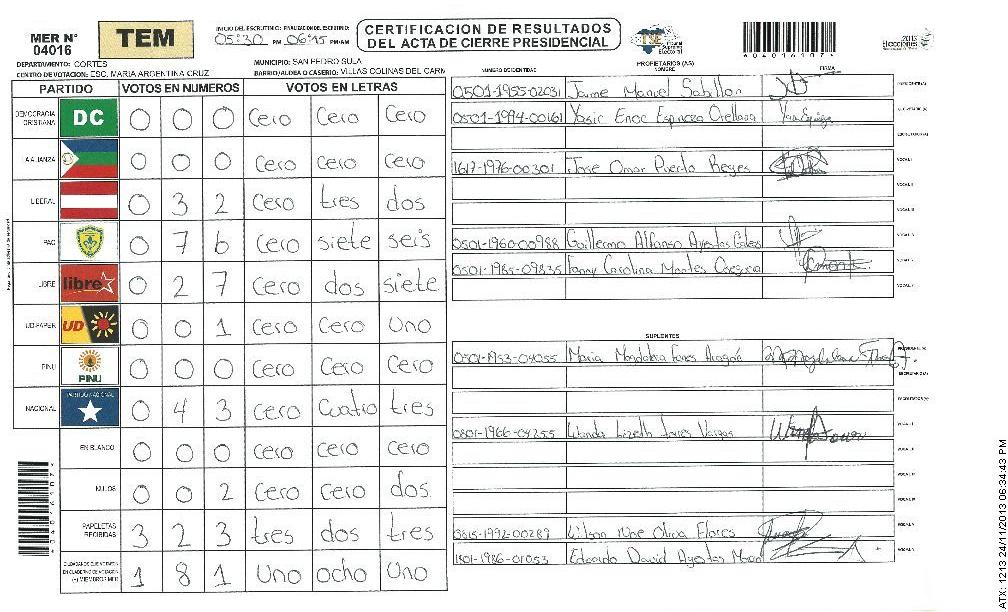 MER N° 04016
TEM
INICIO DEL ESCRUTINIO: FINALIZACION DEL ESCRUTINIO:
05:30 PM 06:45 PM/AM
CERTIFICACION DE RESULTADOS
DEL ACTA DE CIERRE PRESIDENCIAL
TSE
Supremo
Electoral
0404016107
2013
Elecciones
DEPARTAMENTO: CORTES
MUNICIPIO: SAN PEDRO SULA
CENTRO DE VOTACION: ESC. MARIA ARGENTINA CRUZ
BARRIO/ALDEA O CASERIO: VILLAS COLINAS DEL CARM
PARTIDO VOTOS EN NUMEROS VOTOS EN LETRAS
DEMOCRACIA CRISTIANA DC 0 0 0 Cero Cero Cero
ALIANZA 0 0 0 Cero Cero Cero
LIBERAL 0 3 2 Cero tres dos
PAC 0 7 6 Cero siete seis
LIBRE libre 0 2 7 Cero dos siete
UD-FAPER UD 0 0 1 Cero Cero Uno
PINU PINU 0 0 0 Cero Cero Cero
NACIONAL PARTIDO NACIONAL 0 4 3 Cero Cuatro tres
EN BLANCO 0 0 0 Cero Cero Cero
NULOS 0 0 2 Cero Cero dos
PAPELETAS RECIBIDAS 3 2 3 tres dos tres
CIUDADANOS QUE VOTARON EN CUADERNO DE VOTACION (+) MIEMBROS MER 1 8 1 Uno ocho Uno
PROPIETARIOS (AS)
NUMERO DE IDENTIDAD NOMBRE FIRMA
0501-1955-02031 Jaime Manuel Sabillon PRESIDENTE(A)
0501-1994-00161 Yasir Enoc Espinoza Orellana SECRETARIO(A)
ESCRUTADOR(A)
1617-1976-00301 Jose Omar Puerto Reyes VOCAL I
VOCAL II
VOCAL III
0501-1960-00988 Guillermo Alfonso VOCAL
0501-1985-09835 Fanny Carolina Montes VOCAL
VOCAL
SUPLENTES
0501-1953-04055 Maria Magdalena Funes PRESIDENTE(A)
SECRETARIO(A)
ESCRUTADOR(A)
0801-1966-04255 Wanda Lizeth Vargas VOCAL I
VOCAL II
VOCAL
0815-1992-00289 Wilson Noe Oliva Flores VOCAL
1801-1986-01053 Edgardo David VOCAL
ATX: 1213 24/11/2013 06:34:43 PM